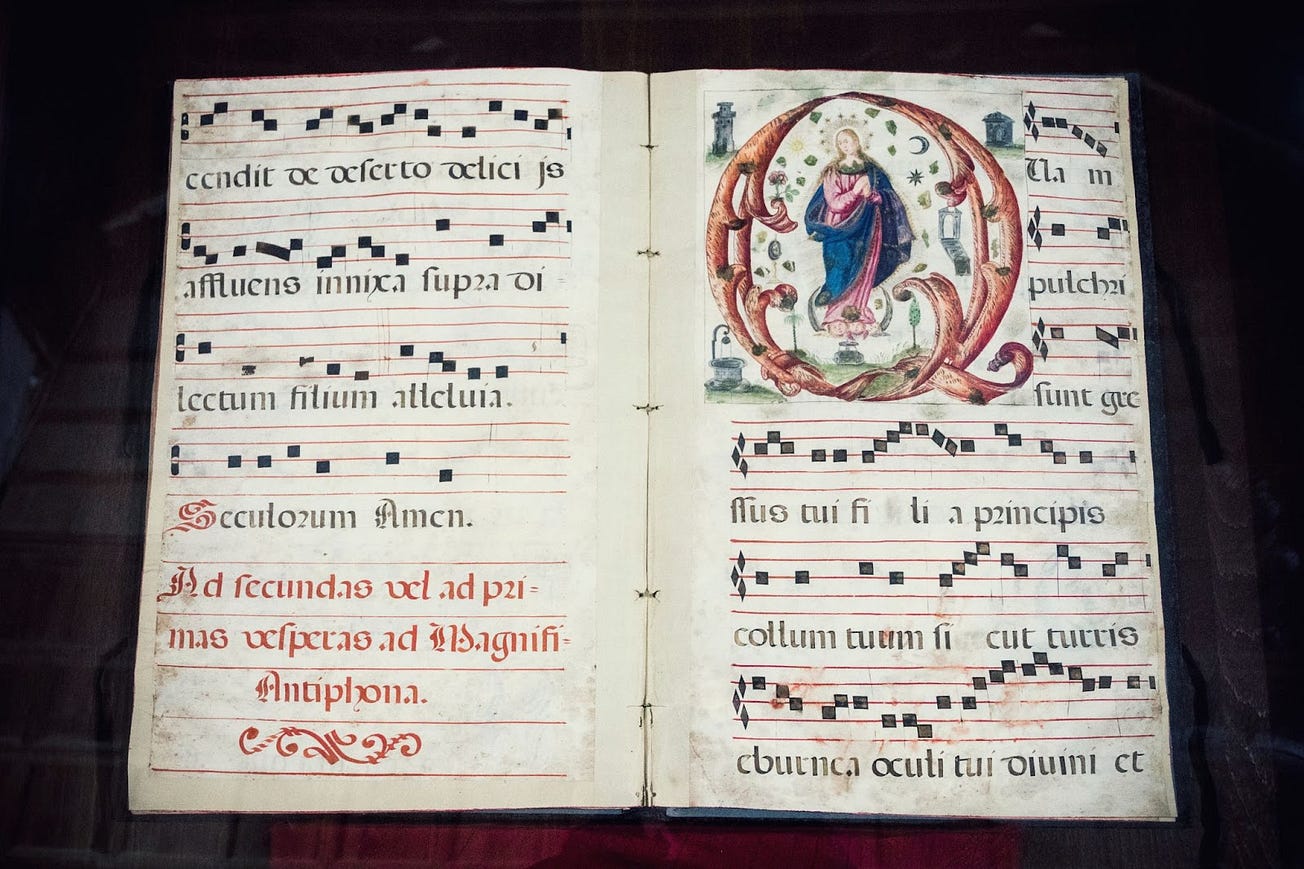 cendit de deserto delici js
affluens innixa supra di-
lectum filium alleluia.
Seculorum Amen.
Ad secundas vel ad pri-
mas vesperas ad Magnifi-
Antiphona.
QUa m
pulchri
sunt gre
ssus tui fi li a principis
collum tuum si cut turris
eburnea oculi tui diuini et